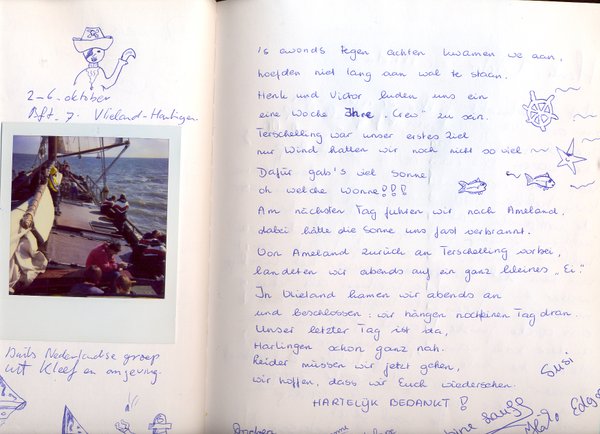 2-6. oktober
Afd. 7. Vlieland-Harlingen
Duits Nederlandse groep
uit Kleef en omgeving.
's avonds tegen achten kwamen we aan,
hoefden niet lang aan wal te staan.
Henk und Victor luden uns ein
eine Woche Ihre "Crew" zu sein.
Terschelling war unser erstes Ziel
nur Wind hatten wir noch nicht so viel
Dafür gab's viel Sonne
oh welche Wonne!!!
Am nächsten Tag fuhren wir nach Ameland,
dabei hätte die Sonne uns fast verbrannt.
Von Ameland zurück an Terschelling vorbei,
landeten wir abends auf ein ganz kleines "Ei".
In Vlieland kamen wir abends an
und beschlossen: wir hängen noch einen Tag dran.
Unser letzter Tag ist da,
Harlingen schon ganz nah.
Leider müssen wir jetzt gehen,
wir hoffen, dass wir Euch wiedersehen.
HARTELIJK BEDANKT!
Susi